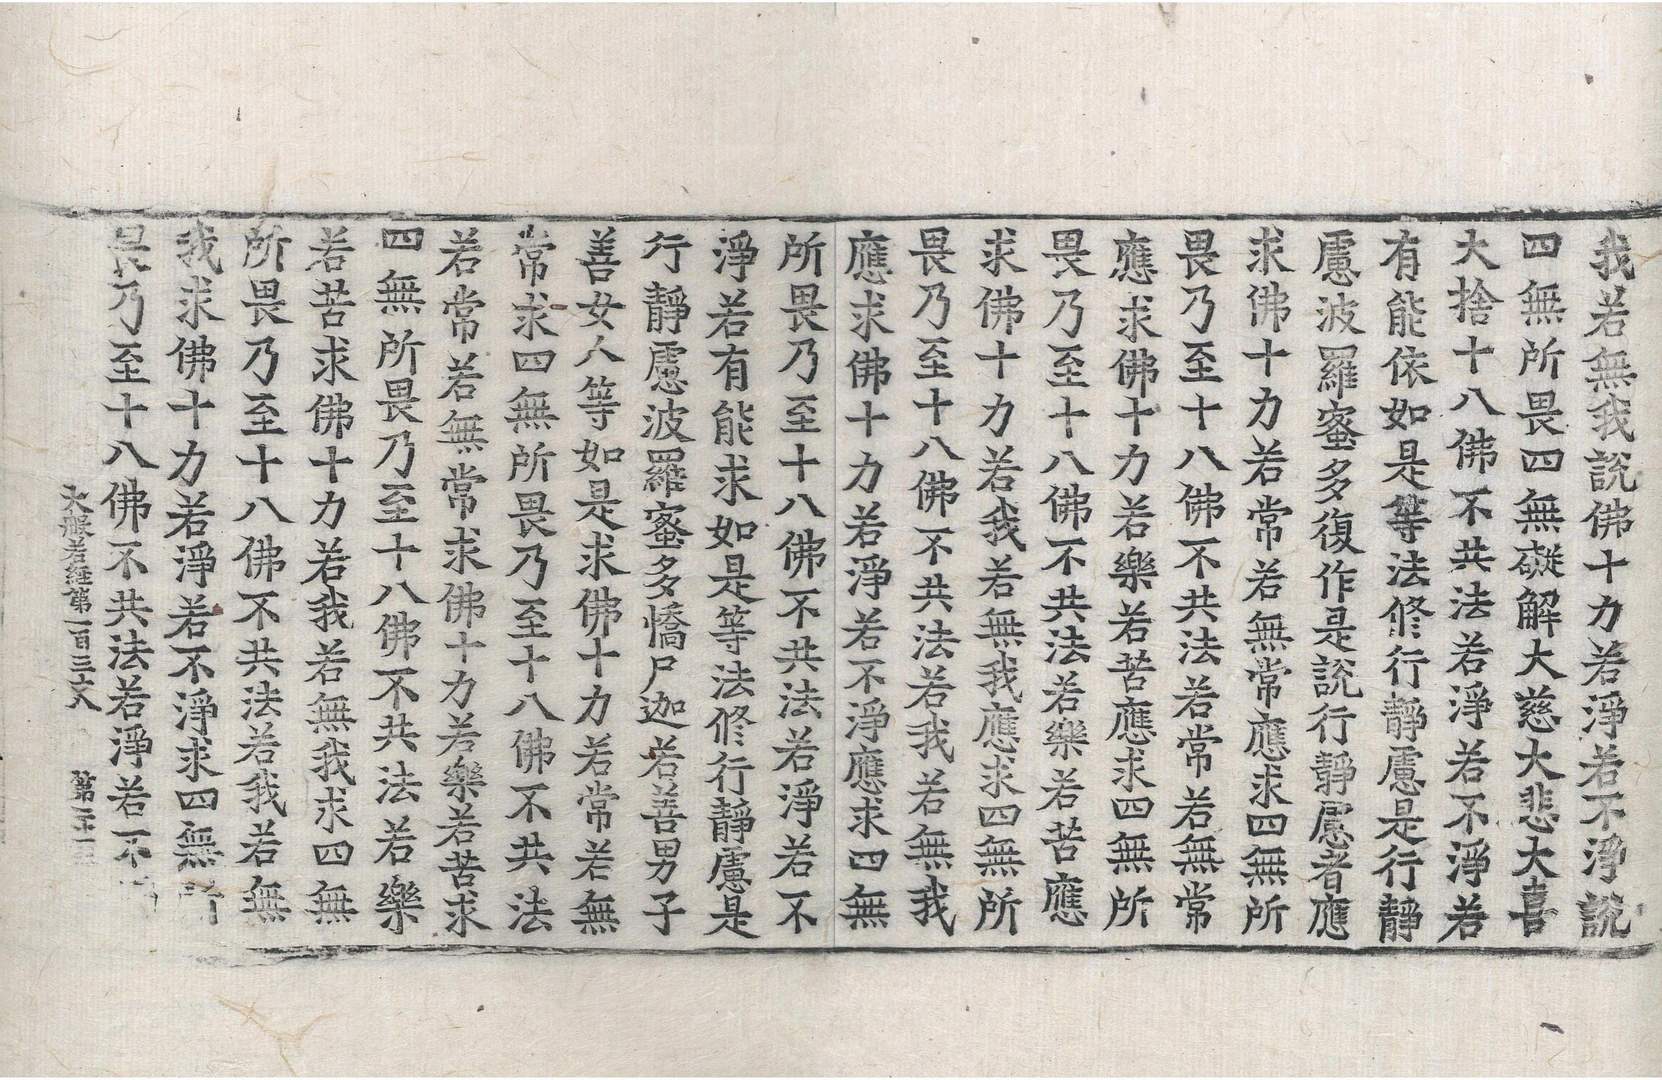 我若無我說佛十力若淨若不淨說
四無所畏四無礙解大慈大悲大喜
大捨十八佛不共法若淨若不淨若
有能依如是等法修行靜慮是行靜
慮波羅蜜多復作是說行靜慮者應
求佛十力若常若無常應求四無所
畏乃至十八佛不共法若常若無常
應求佛十力若樂若苦應求四無所
畏乃至十八佛不共法若樂若苦應
求佛十力若我若無我應求四無所
畏乃至十八佛不共法若我若無我
應求佛十力若淨若不淨應求四無
所畏乃至十八佛不共法若淨若不
淨若有能求如是等法修行靜慮是
行靜慮波羅蜜多憍尸迦若善男子
善女人等如是求佛十力若常若無
常求四無所畏乃至十八佛不共法
若常若無常求佛十力若樂若苦求
四無所畏乃至十八佛不共法若樂
若苦求佛十力若我若無我求四無
所畏乃至十八佛不共法若我若無
我求佛十力若淨若不淨求四無所
畏乃至十八佛不共法若淨若不
大般若經第一百三六 第二十一